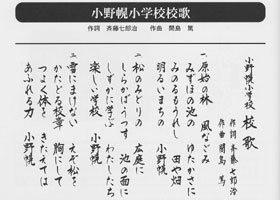 小野幌小学校校歌
作詞 斉藤七郎治 作曲 開島 篤
小野幌小学校 校歌
作詞 斉藤七郎治
作曲 開島 篤
一、原始の林 風なごみ
みずほの池の ゆたかさに
みのるもうれし 田や畑
明るいまち 小野幌
二、松のみどりの 広庭に
しらかばうつす 池の面に
しずかに学ぶ わたしたち
楽しい学校 小野幌
三、雪にまけない えぞ松を
かたどる校章 胸にして
つよく体を きたえては
あふれる力 小野幌